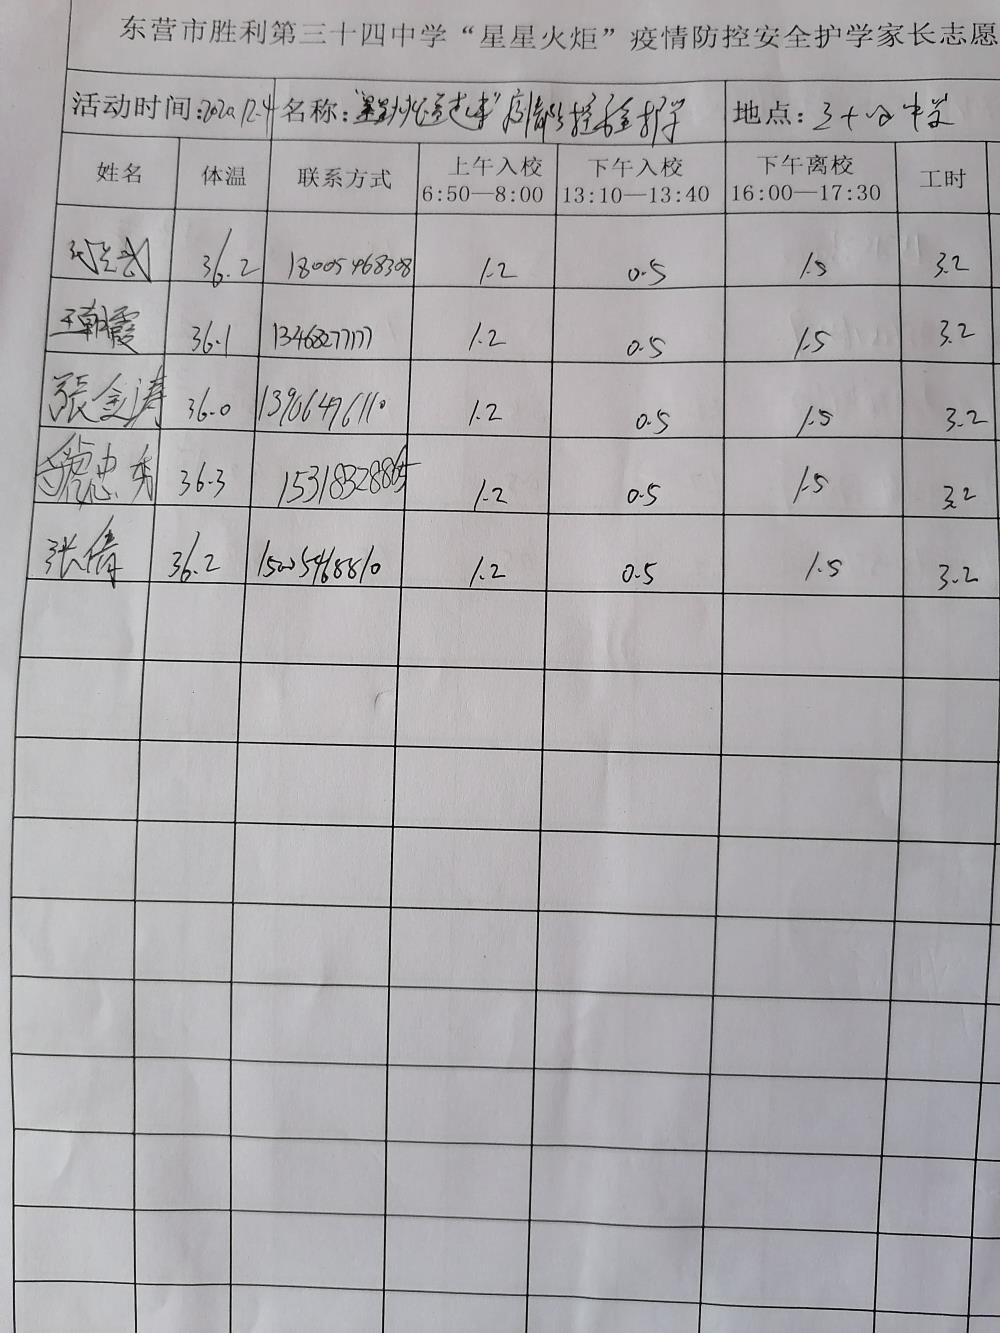 东营市胜利第三十四中学“星星火炬”疫情防控安全护学家长志愿
活动时间:2020.12.4 名称: 疫情防控安全护学 地点: 三十四中学
姓名 体温 联系方式 上午入校 6:50—8:00 下午入校 13:10—13:40 下午离校 16:00—17:30 工时
36.2 18005468308 1.2 0.5 1.5 3.2
王朝霞 36.1 1.2 0.5 1.5 3.2
張金涛 36.0 13966496110 1.2 0.5 1.5 3.2
36.3 1.2 0.5 1.5 3.2
张倩 36.2 15005468810 1.2 0.5 1.5 3.2